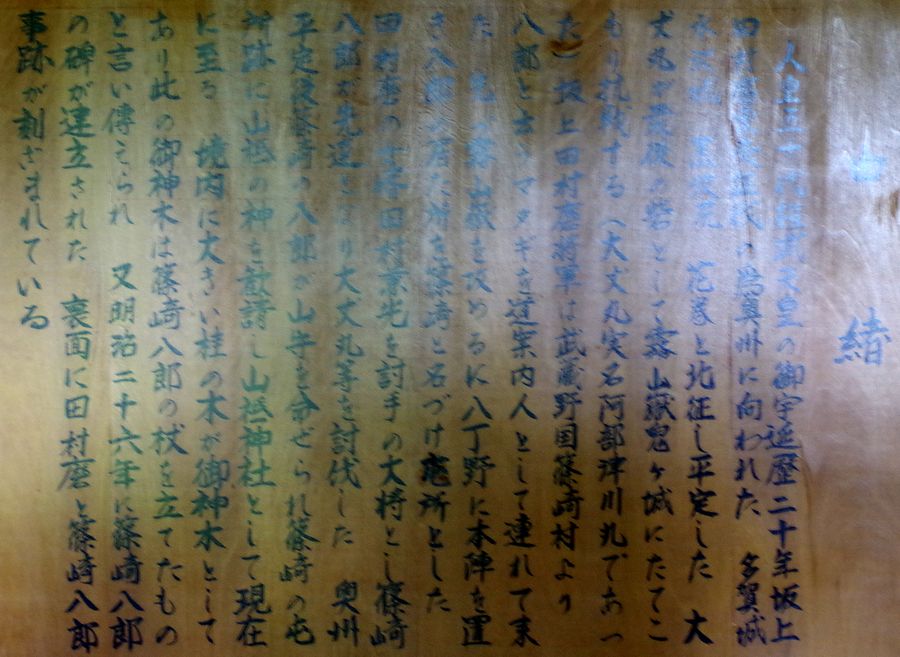 由緒
人皇五十代桓武天皇の御宇延歴二十年坂上
田村麿 の為奥州に向われた 多賀城
花塚と北征し平定した 大
丈丸 最後の砦として霧山嶽鬼ヶ城にたてこ
もり抗戦する(大丈丸実名阿部津川丸であっ
た)坂上田村麿将軍は武蔵野国篠崎村より
八郎と云うマタギを道案内人として連れて来
た 霧山嶽を攻めるに八丁野に本陣を置
き八郎の居た所を篠崎と名づけ 所とした
田村麿の 田村業光を討手の大将とし篠崎
八郎が先達となり大丈丸等を討伐した 奥州
平定後篠崎の八郎が山守を命ぜられ篠崎の屯
所跡に山祗の神を勧請し山祗神社として現在
に至る 境内に大きい桂の木が御神木として
あり此の御神木は篠崎八郎の杖を立てたもの
と言い傳えられ 又明治二十六年に篠崎八郎
の碑が建立された 裏面に田村麿と篠崎八郎
事跡が刻まれている